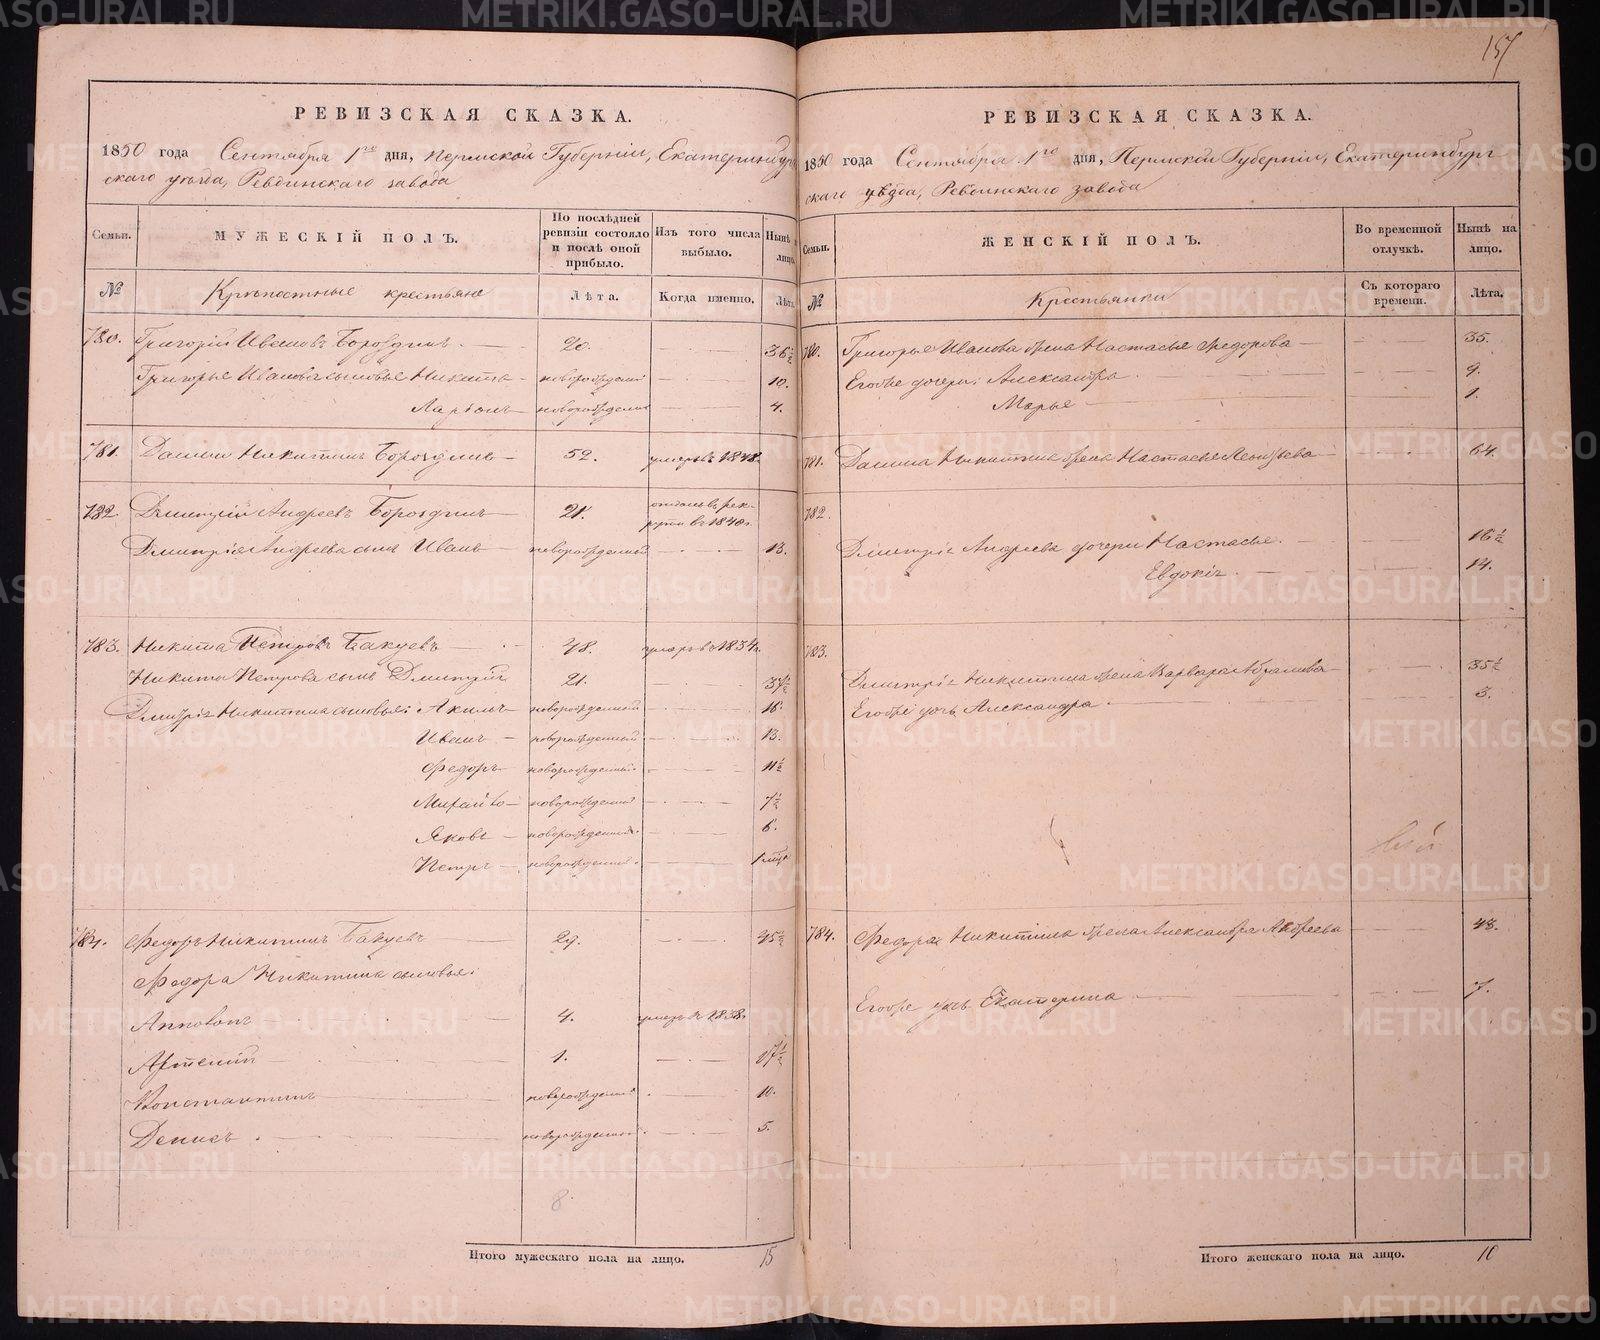 157
РЕВИЗСКАЯ СКАЗКА.
1850 года Сентября 1го дня, Пермской Губерніи, Екатеринбург
скаго уѣзда, Ревдинскаго завода
Семьи.
МУЖЕСКІЙ ПОЛЪ.
По послѣдней ревизіи состояло и послѣ оной прибыло.
Изъ того числа выбыло.
Нынѣ на лицо.
№
Крѣпостные крестьяне
Лѣта.
Когда именно.
Лѣта.
780. Григорій Ивановъ Бороздинъ 20. 36½
Григорья Иванова сыновья Никита новорожденный 10.
Ларіонъ новорожденный 4.
781. Данило Никитинъ Бороздинъ 52. умеръ въ 1848.
782. Дмитрій Андреевъ Бороздинъ 21. отданъ въ рек-
руты въ 1840 г.
Дмитрія Андреева сынъ Иванъ новорожденный 13.
783. Никита Петровъ Бакуевъ 48. умеръ въ 1834 г.
Никиты Петрова сынъ Дмитрій 21. 37½
Дмитрія Никитина сыновья: Акилъ новорожденный 16.
Иванъ новорожденный 13.
Федоръ новорожденный 11½
Михайло новорожденный 7½
Яковъ новорожденный 6.
Петръ новорожденный
784. Федоръ Никитинъ Бакуевъ 29. 45½
Федора Никитина сыновья:
Апполонъ 4. умеръ въ 1838.
Артемій 1. 17½
Константинъ новорожденный 10.
Денисъ новорожденный 5.
8
Итого мужескаго пола на лицо. 15
РЕВИЗСКАЯ СКАЗКА.
1850 года Сентября 1го дня, Пермской Губерніи, Екатеринбург
скаго уѣзда, Ревдинскаго завода
Семьи.
ЖЕНСКІЙ ПОЛЪ.
Во временной отлучкѣ.
Нынѣ на лицо.
№
Крестьянки
Съ котораго времени.
Лѣта.
780. Григорья Иванова жена Настасья Федорова 35.
Его же дочери: Александра 9.
Марья 1.
781. Данила Никитина жена Настасья 64.
782.
Дмитрія Андреева дочери Настасья 16½
Евдокія 14.
783.
Дмитрія Никитина жена Варвара Абрамова 35½
Его же дочь Александра 3.
784. Федора Никитина жена Александра Андреева 48.
Его же дочь Екатерина 7.
Итого женскаго пола на лицо. 10
METRIKI.GASO-URAL.RU